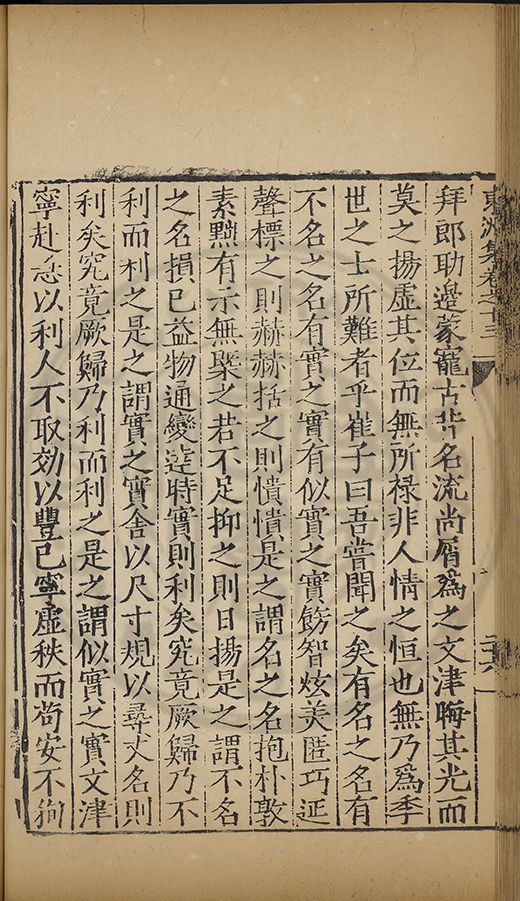 東洲集卷之十三
二六
拜郎助邊蒙寵古昔名流尚屑爲之文津晦其光而
莫之揚虛其位而無所祿非人情之恒也無乃爲季
世之士所難者乎崔子曰吾嘗聞之矣有名之名有
不名之名有實之實有似實之實飭智炫美匿巧延
聲標之則赫赫括之則憒憒是之謂名之名抱朴敦
素黙有示無槩之若不足抑之則日揚是之謂不名
之名損已益物通變逹時實則利矣究竟厥歸乃不
利而利之是之謂實之實舍以尺寸規以尋丈名則
利矣究竟厥歸乃利而利之是之謂似實之實文津
寧赴恙以利人不取効以豐已寧虛秩而苟安不狥